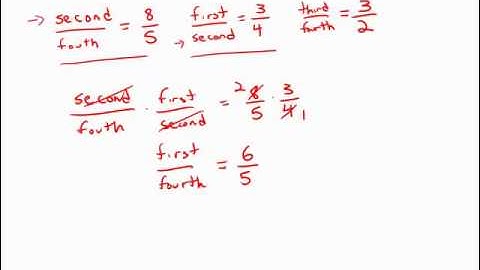 → second/fouth = 8/5 → first/second = 3/4 third/fourth = 3/2
second/fouth · first/second = 2 8/5 · 3/4 1
first/fourth = 6/5